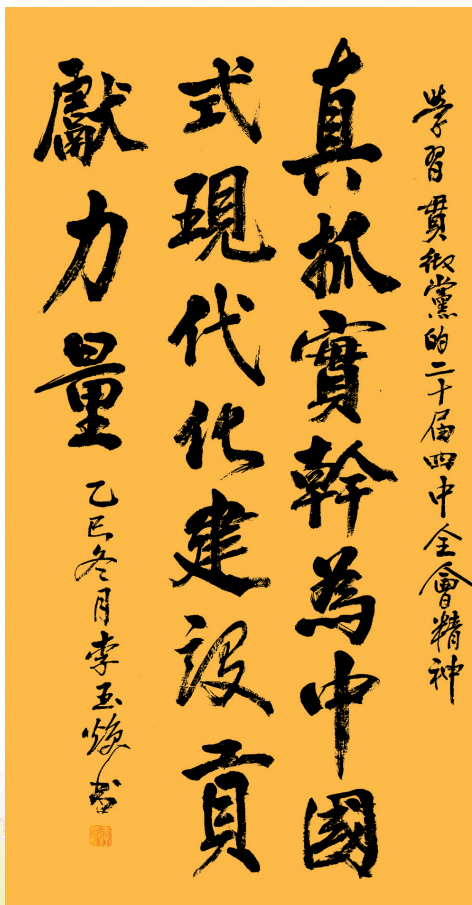 學習貫徹黨的二十届四中全會精神
真抓實幹為中國
式現代化建設貢
獻力量
乙巳冬月李玉焕书